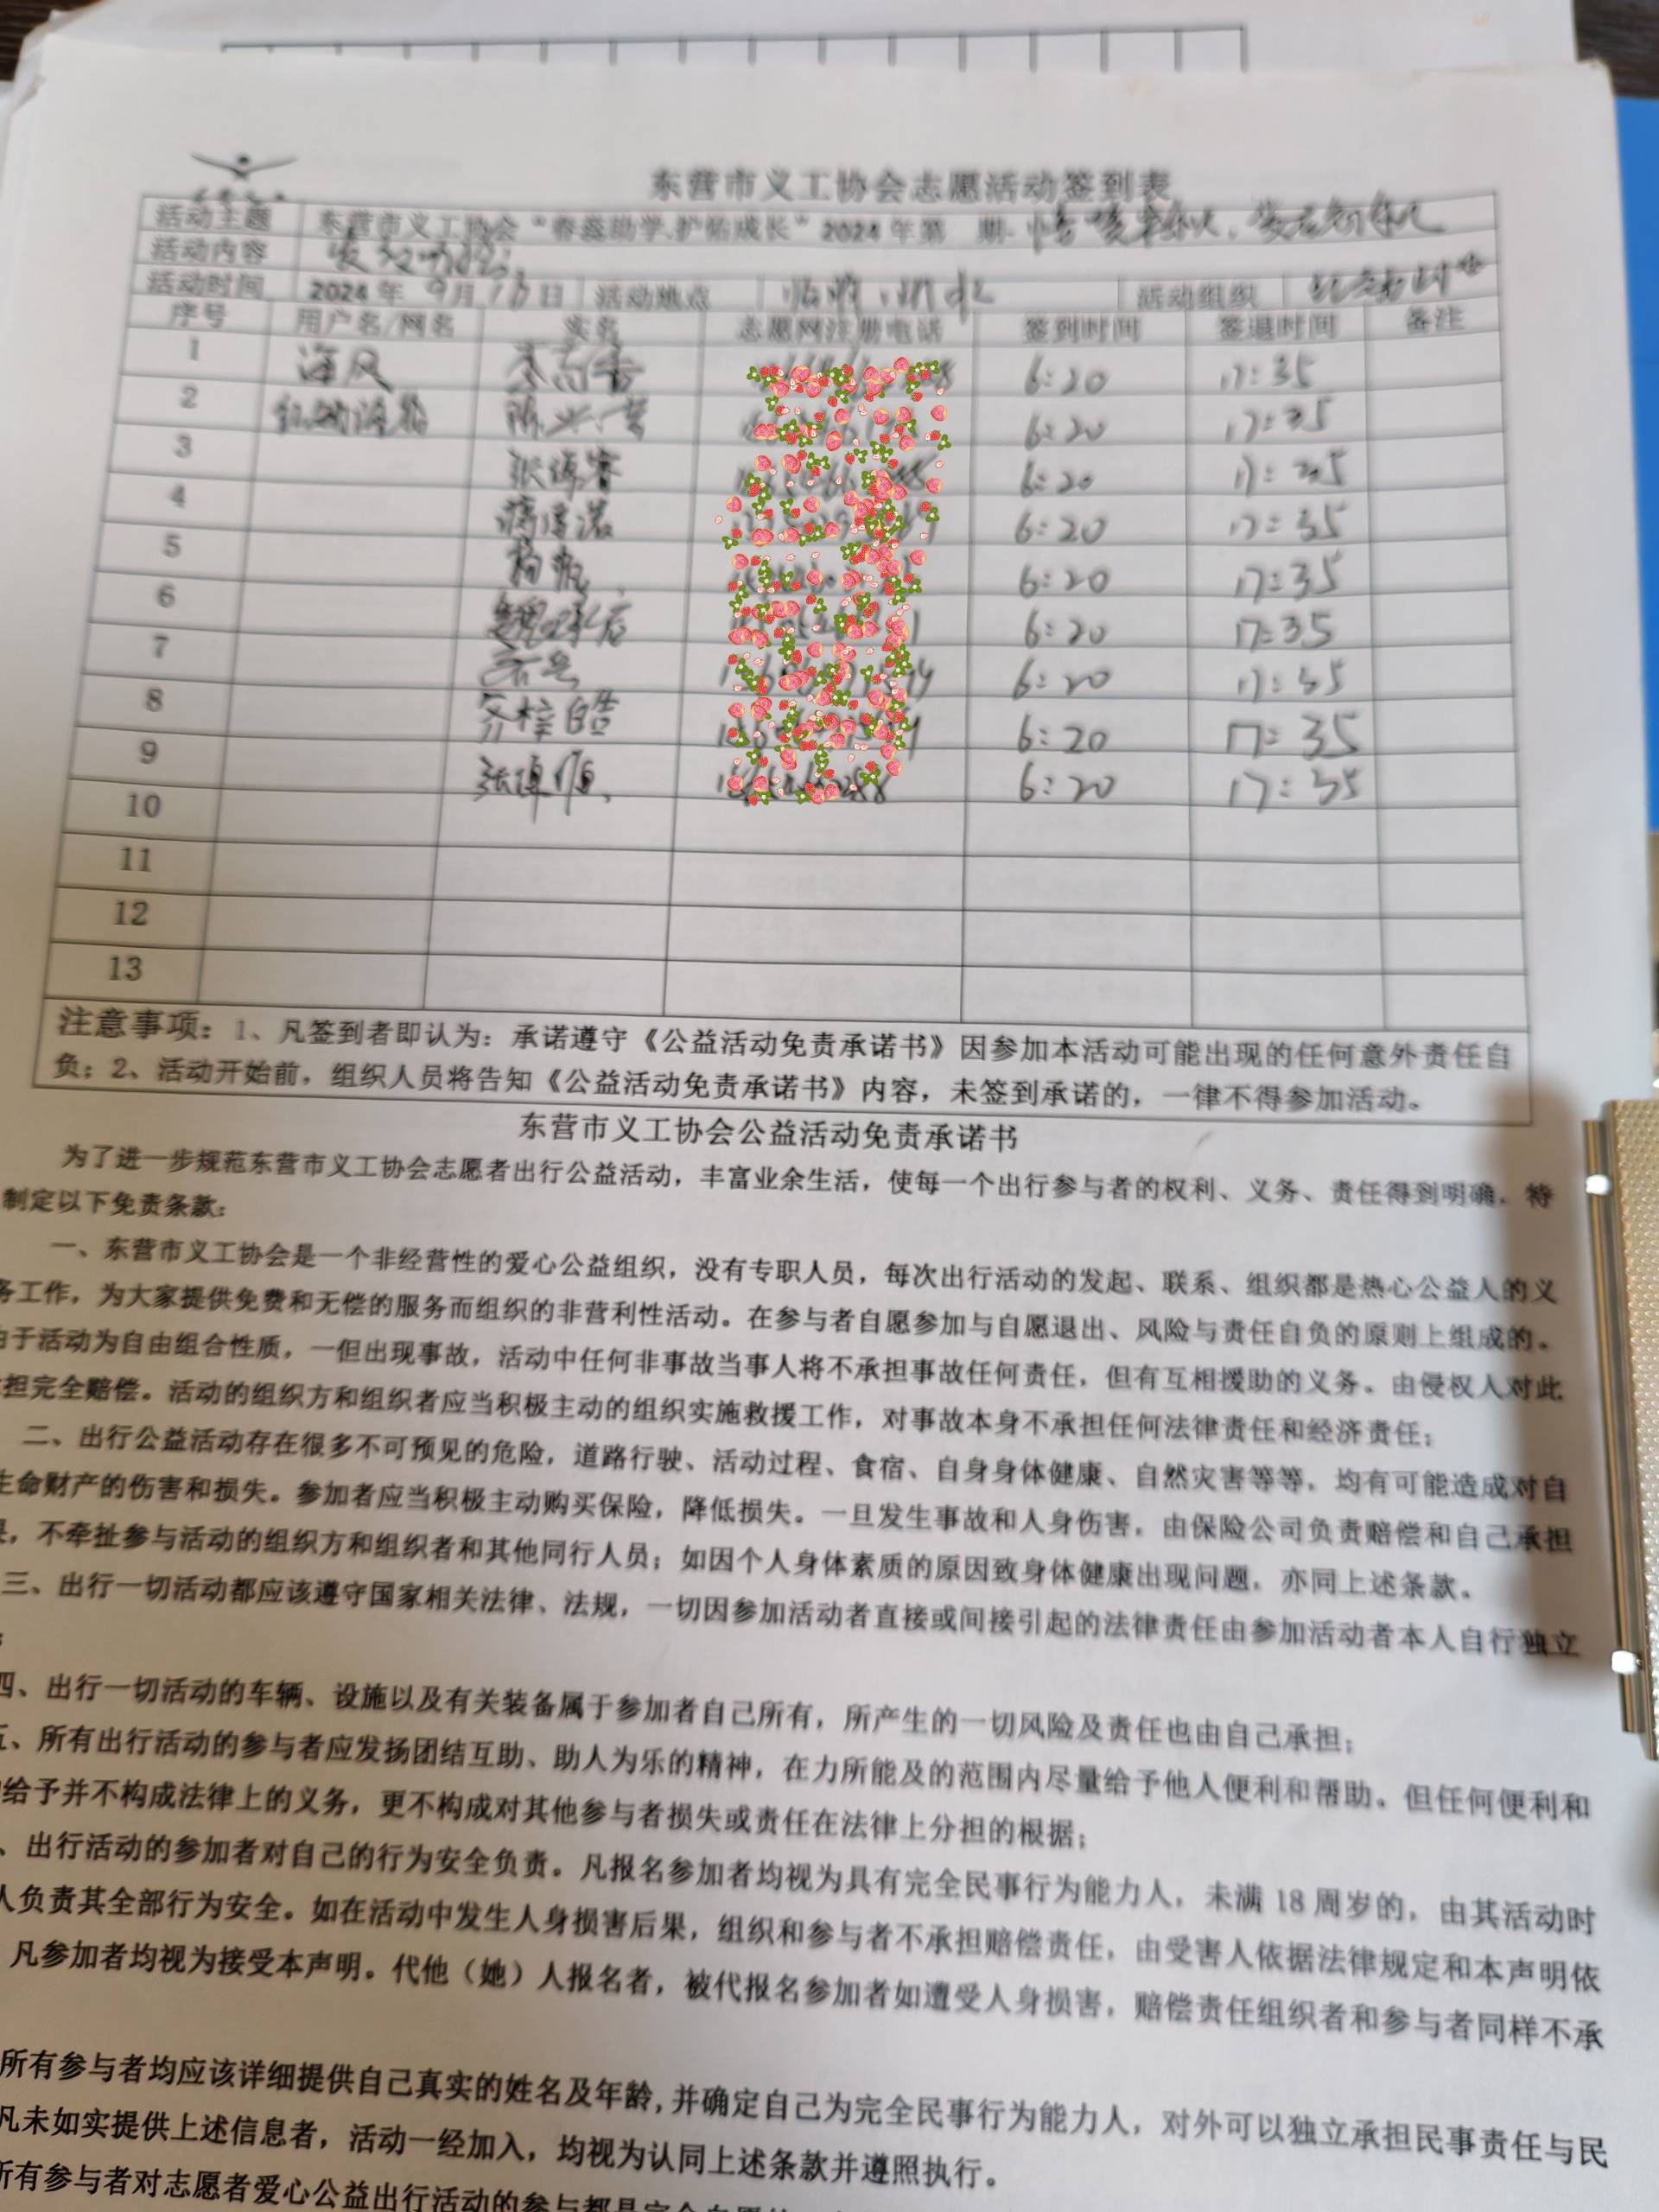 东营市义工协会志愿活动签到表
活动主题 东营市义工协会“春蕊助学,扩拓成长”2024年第 期-
活动内容
活动时间 2024年9月10日 活动地点 临朐 活动组织
序号 用户名/网名 实名 志愿网注册电话 签到时间 签退时间 备注
1 海风 6:20 17:35
2 6:20 17:35
3 张博睿 6:20 17:35
4 6:20 17:35
5 杨帆 6:20 17:35
6 6:20 17:35
7 6:20 17:35
8 齐梓皓 6:20 17:35
9 6:20 17:35
10
11
12
13
注意事项：1、凡签到者即认为：承诺遵守《公益活动免责承诺书》因参加本活动可能出现的任何意外责任自
负；2、活动开始前，组织人员将告知《公益活动免责承诺书》内容，未签到承诺的，一律不得参加活动。
东营市义工协会公益活动免责承诺书
为了进一步规范东营市义工协会志愿者出行公益活动，丰富业余生活，使每一个出行参与者的权利、义务、责任得到明确。特
制定以下免责条款：
一、东营市义工协会是一个非经营性的爱心公益组织，没有专职人员，每次出行活动的发起、联系、组织都是热心公益人的义
务工作，为大家提供免费和无偿的服务而组织的非营利性活动。在参与者自愿参加与自愿退出、风险与责任自负的原则上组成的。
由于活动为自由组合性质，一但出现事故，活动中任何非事故当事人将不承担事故任何责任，但有互相援助的义务。由侵权人对此
担完全赔偿。活动的组织方和组织者应当积极主动的组织实施救援工作，对事故本身不承担任何法律责任和经济责任；
二、出行公益活动存在很多不可预见的危险，道路行驶、活动过程、食宿、自身身体健康、自然灾害等等，均有可能造成对自
生命财产的伤害和损失。参加者应当积极主动购买保险，降低损失。一旦发生事故和人身伤害，由保险公司负责赔偿和自己承担
果，不牵扯参与活动的组织方和组织者和其他同行人员；如因个人身体素质的原因致身体健康出现问题，亦同上述条款。
三、出行一切活动都应该遵守国家相关法律、法规，一切因参加活动者直接或间接引起的法律责任由参加活动者本人自行独立
；
四、出行一切活动的车辆、设施以及有关装备属于参加者自己所有，所产生的一切风险及责任也由自己承担；
五、所有出行活动的参与者应发扬团结互助、助人为乐的精神，在力所能及的范围内尽量给予他人便利和帮助。但任何便利和
给予并不构成法律上的义务，更不构成对其他参与者损失或责任在法律上分担的根据；
、出行活动的参加者对自己的行为安全负责。凡报名参加者均视为具有完全民事行为能力人，未满18周岁的，由其活动时
人负责其全部行为安全。如在活动中发生人身损害后果，组织和参与者不承担赔偿责任，由受害人依据法律规定和本声明依
凡参加者均视为接受本声明。代他（她）人报名者，被代报名参加者如遭受人身损害，赔偿责任组织者和参与者同样不承
所有参与者均应该详细提供自己真实的姓名及年龄,并确定自己为完全民事行为能力人，对外可以独立承担民事责任与民
凡未如实提供上述信息者，活动一经加入，均视为认同上述条款并遵照执行。
所有参与者对志愿者爱心公益出行活动的参与都是完全自愿的